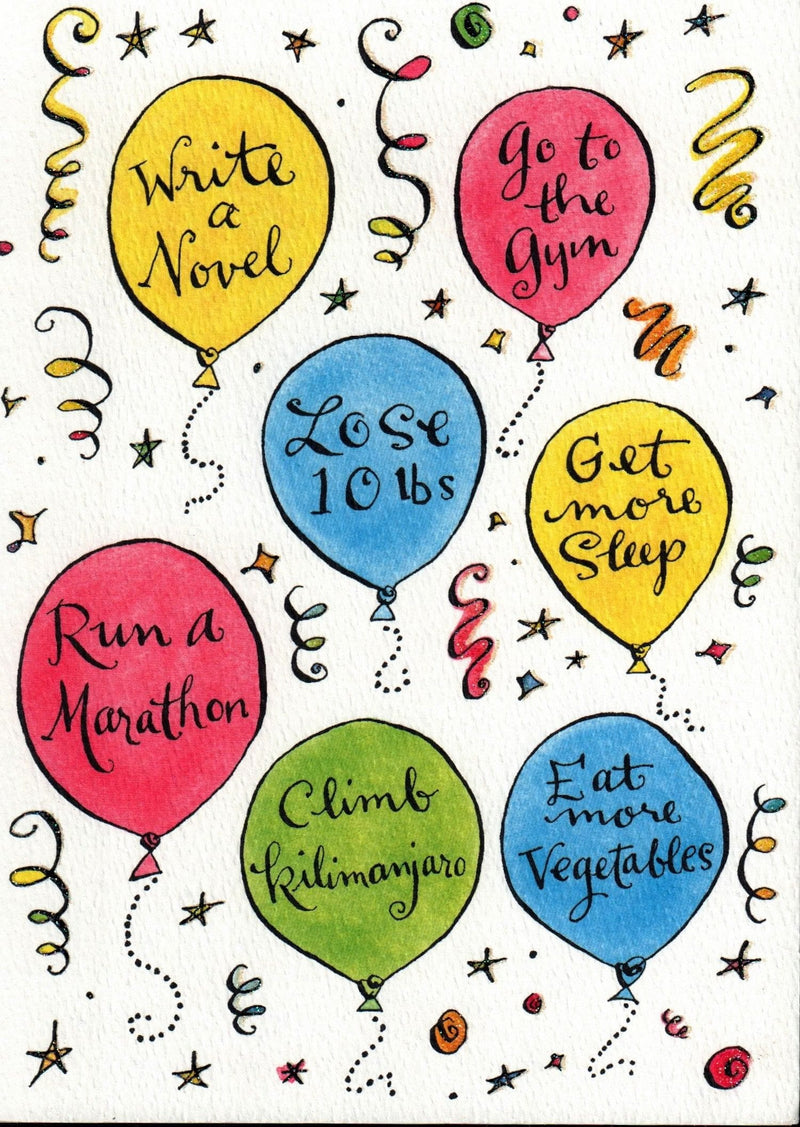 Write
a
Novel
Go to
the
Gym
Lose
10 lbs
Get
more
Sleep
Run a
Marathon
Climb
Kilimanjaro
Eat
more
Vegetables